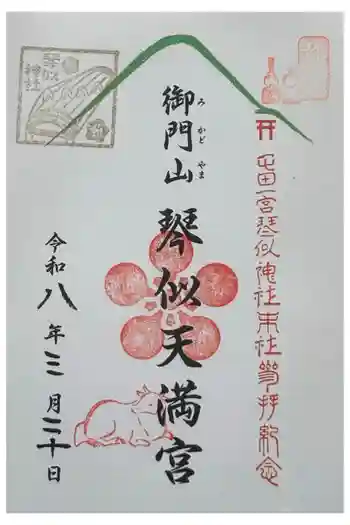 ⛩屯田一宮琴似神社末社参拝紀念
御門山 琴似天満宮
みかどやま
令和八年三月二十日
琴似
神社